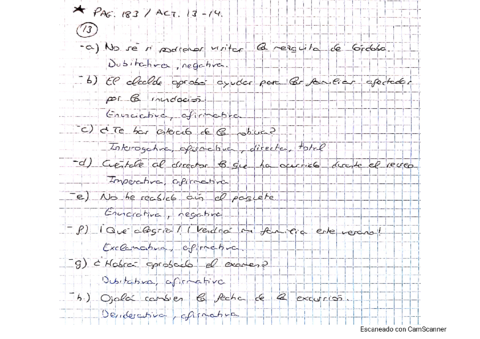 ★ PAG. 183 / ACT. 13-14.
13
-a) No sé si podremos visitar la mezquita de Córdoba.
Dubitativa, negativa.
-b) El alcalde aprobó ayudas para las familias afectadas
por la inundación.
Enunciativa, afirmativa
-c) ¿Te has enterado de la?
Interrogativa, afirmativa, directa, total
-d) Cuéntale al director lo que ha ocurrido durante el recreo
Imperativa, afirmativa
-e) No he recibido aún el paquete
Enunciativa, negativa
-f) ¡Qué alegría! ¡Vendrá mi familia este verano!
Exclamativa, afirmativa.
-g) ¿Habré aprobado el examen?
Dubitativa, afirmativa
-h) Ojalá cambien la fecha de la excursión.
Desiderativa, afirmativa
Escaneado con CamScanner